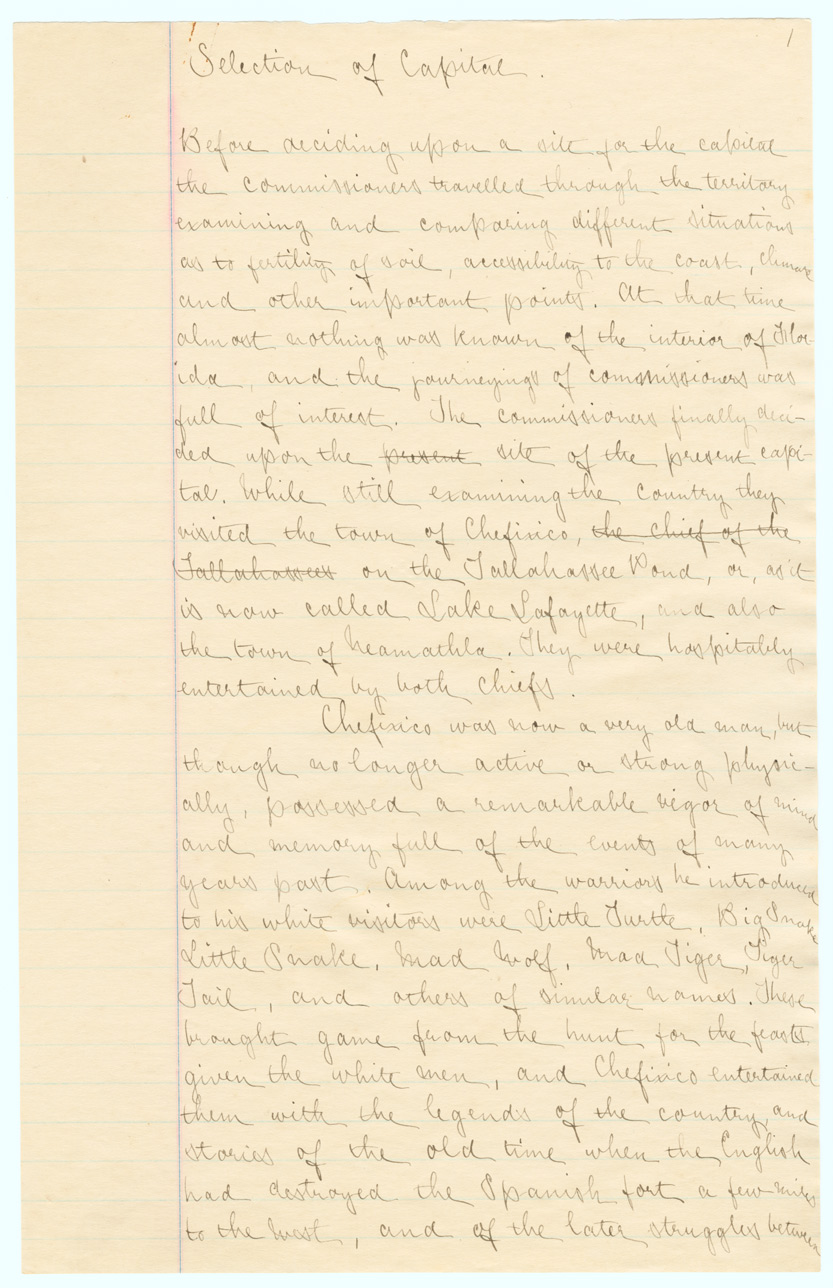 1
Selection of Capital.
Before deciding upon a site for the capital
the commissioners travelled through the territory
examining and comparing different situations
as to fertility of soil, accessibility to the coast, climate
and other important points. At that time
almost nothing was known of the interior of Flor-
ida, and the journeyings of commissioners was
full of interest. The commissioners finally deci-
ded upon the present site of the present capi-
tal. While still examining the country they
visited the town of Chefixico, the chief of the
Tallahassees on the Tallahassee Pond, or, as it
is now called Lake Lafayette, and also
the town of Neamathla. They were hospitably
entertained by both chiefs.
Chefixico was now a very old man, but
though no longer active or strong physic-
ally, possessed a remarkable vigor of mind
and memory full of the events of many
years past. Among the warriors he introduced
to his white visitors were Little Turtle, Big Snake
Little Snake, Mad Wolf, Mad Tiger, Tiger
Tail, and others of similar names. These
brought game from the hunt for the feasts
given the white men, and Chefixico entertained
them with the legends of the country, and
stories of the old time when the English
had destroyed the Spanish fort a few miles
to the West, and of the later struggles between